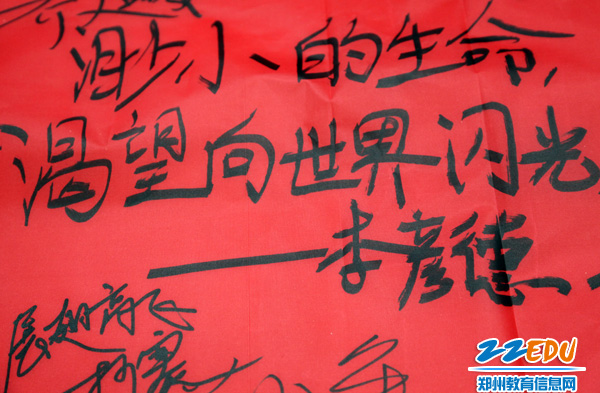 渺小的生命,
渴望向世界闪光
——李彦德
展翅高飞
22EDU
郑州教育信息网